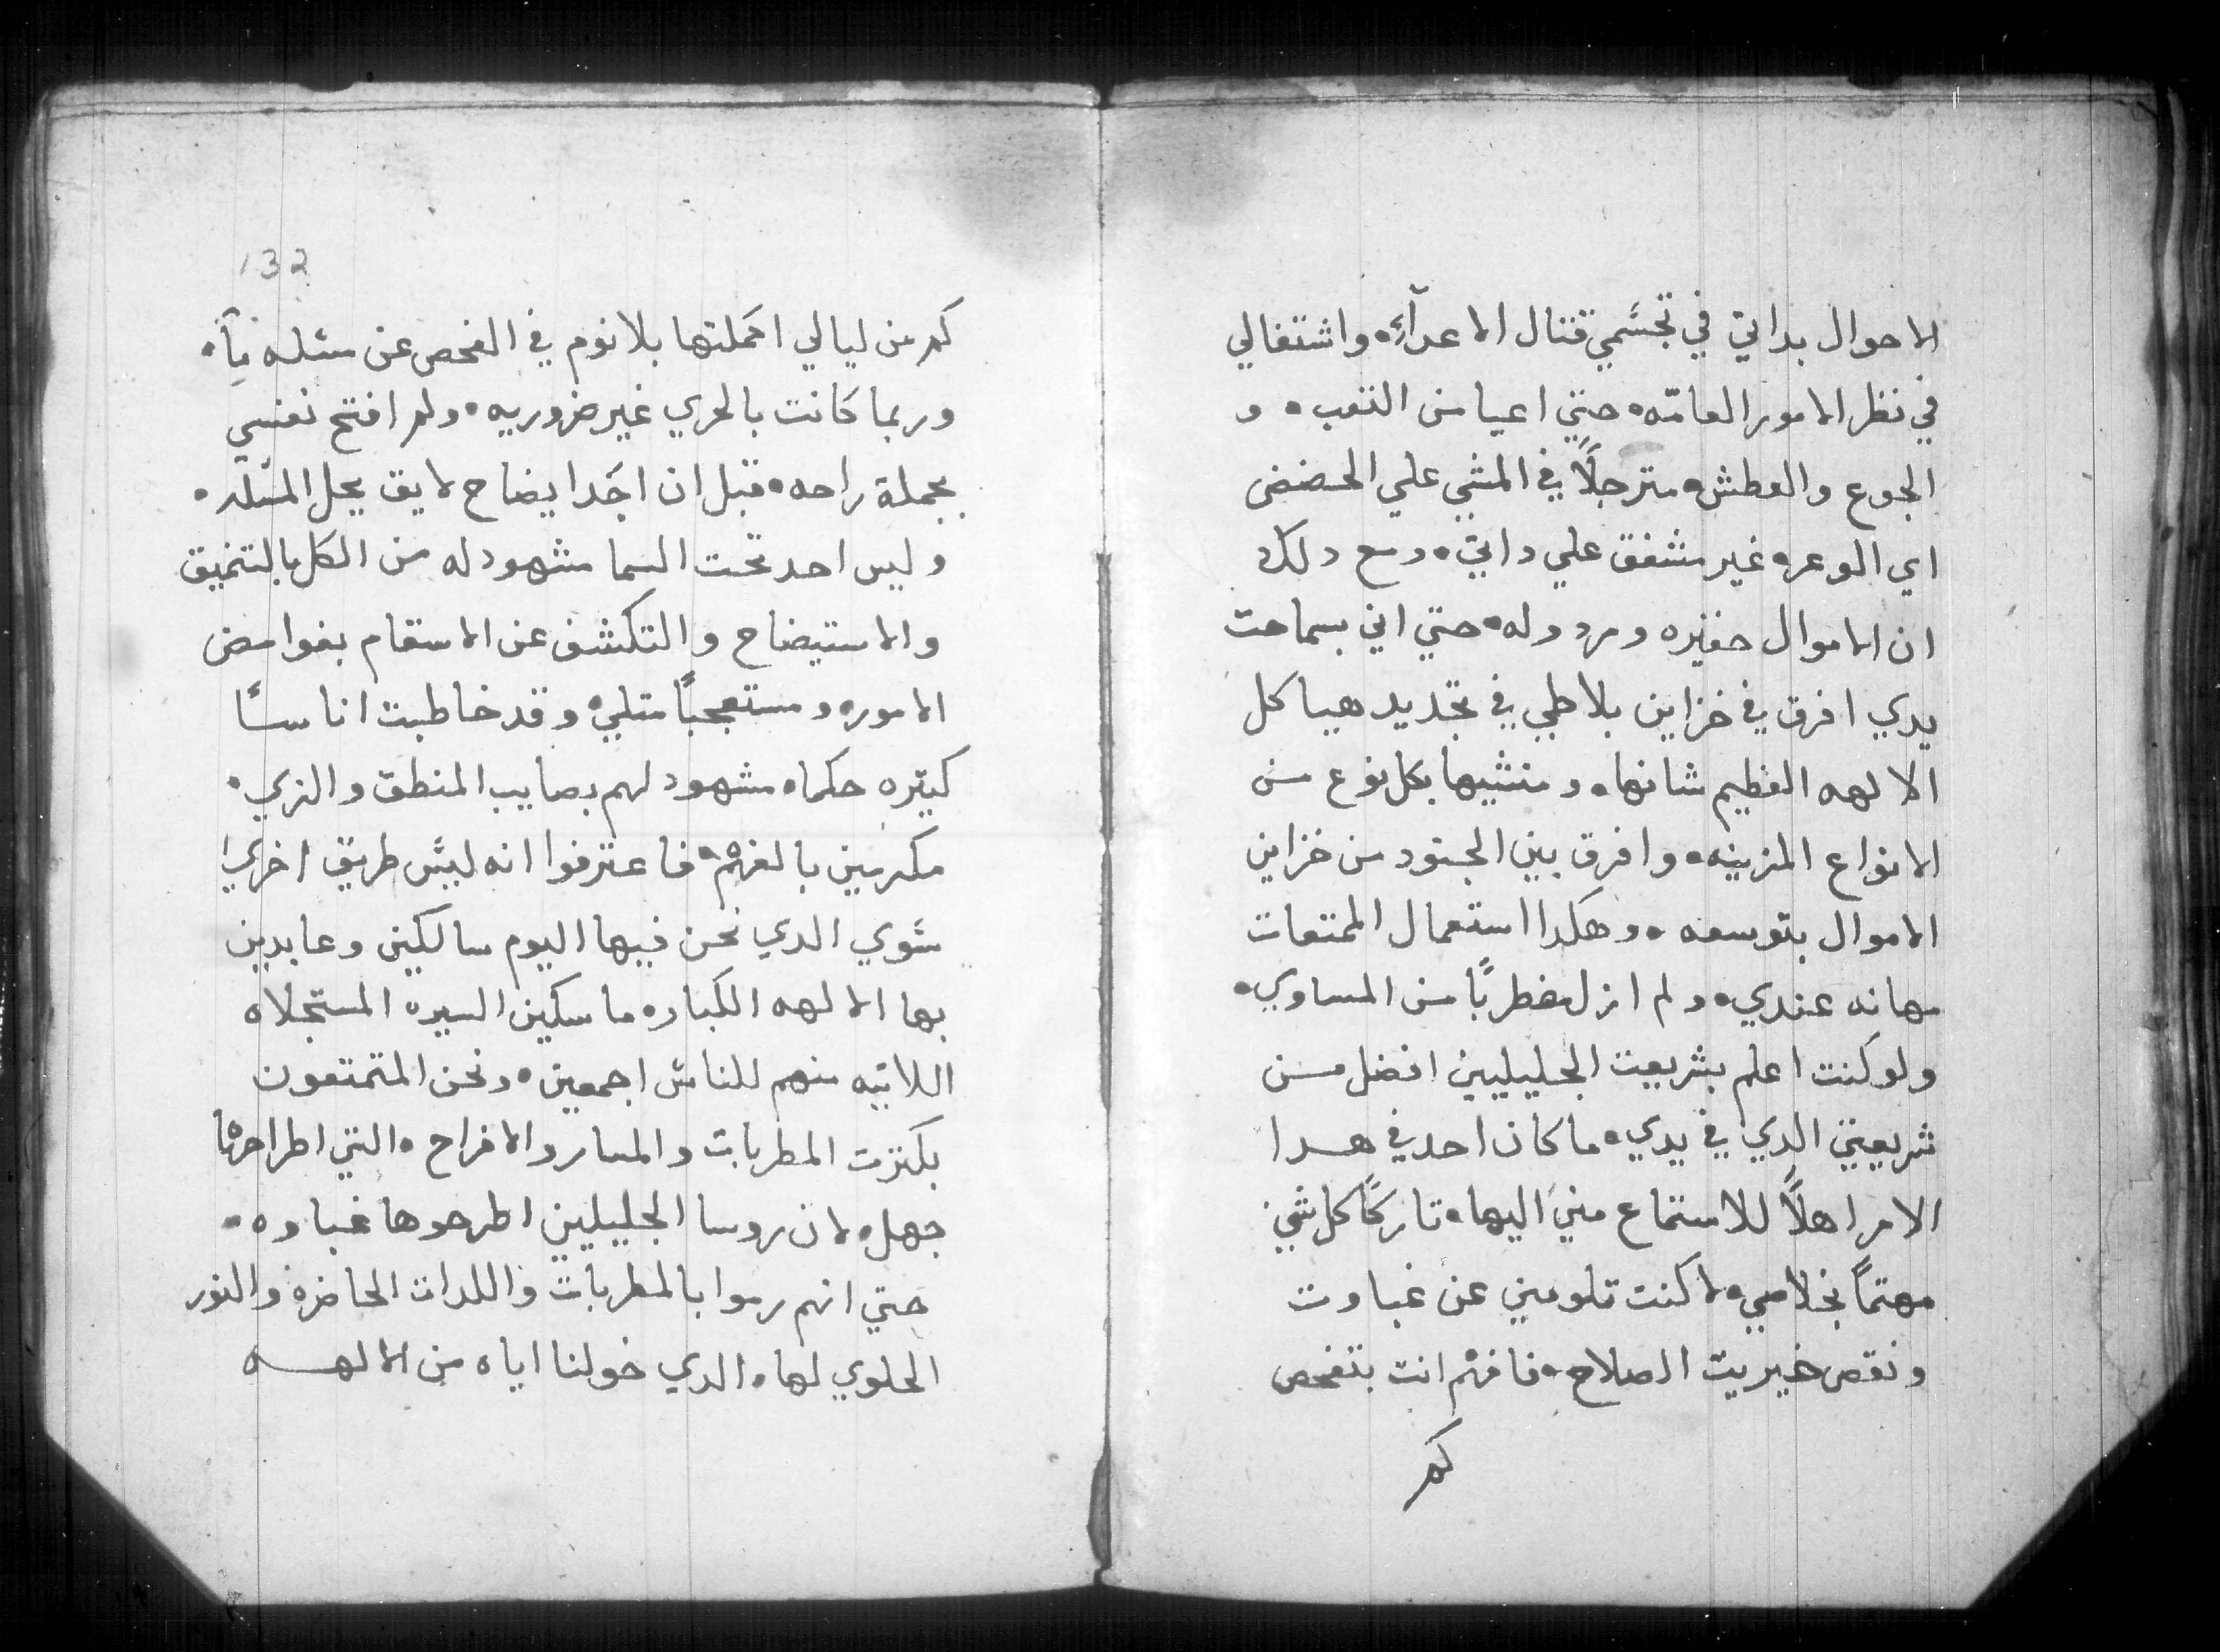 الاحوال بداتي في تجشمي قتال الاعدآء واشتغالي
في نظر الامور العامّه حتي اعيا من التعب و
الجوع والعطش مترجلاً في المشي علي الحضض
اي الوعره غير مشفق علي داتي ومع دلك
ان الاموال حقيره ومردوله حتي اني بسماحت
يدي افرق في خزاين بلاطي في تجديد هياكل
الالهه العظيم شانها ومنشيها بكل نوع من
الانواع المزينه وافرق بين الجنود من خزاين
الاموال بتوسعه وهكدا استعمال الممتعات
مهانه عندي ولم ازل مضطربًا من المساوي
ولو كنت اعلم بشريعت الجليليين افضل من
شريعتي الدي في يدي ما كان احد في هدا
الامر اهلاً للاستماع مني اليها تاركًا كل شي
مهتمًا بخلاصي لا كنت تلومني عن غباوت
ونقص خيريت الصلاح فافهم انت بتفحص
كم
132
كم من ليالي اكملتها بلا نوم في الفحص عن مسئله مآ
وربما كانت بالحري غير ضروريه ولم افتح نفسي
بجملة راحه قبل ان اجد ايضاح لايق بحل المسئله
وليس احد تحت السما مشهود له من الكل بالتنميق
والاستيضاح والتكشف عن الاسقام بغوامض
الاموره ومستعجبًا مثلي وقد خاطبت اناسًا
كتيره حكماه مشهود لهم بصايب المنطق والزي
مكرمين بالفهم فاعترفوا انه ليس طريق اخري
سوي الدي نحن فيها اليوم سالكين وعابدين
بها الالهه الكباره ماسكين السيره المستجلاه
اللاتيه منهم للناس اجمعين ونحن المتمتعون
بكترت المطربات والمسار والافراح التي اطراحها
جهل لان روسا الجليليين اطرحوها غباوه
حتي انهم رموا بالمطربات واللدات الحاضره والنور
الحلوي لها الدي خولنا اياه من الالهه